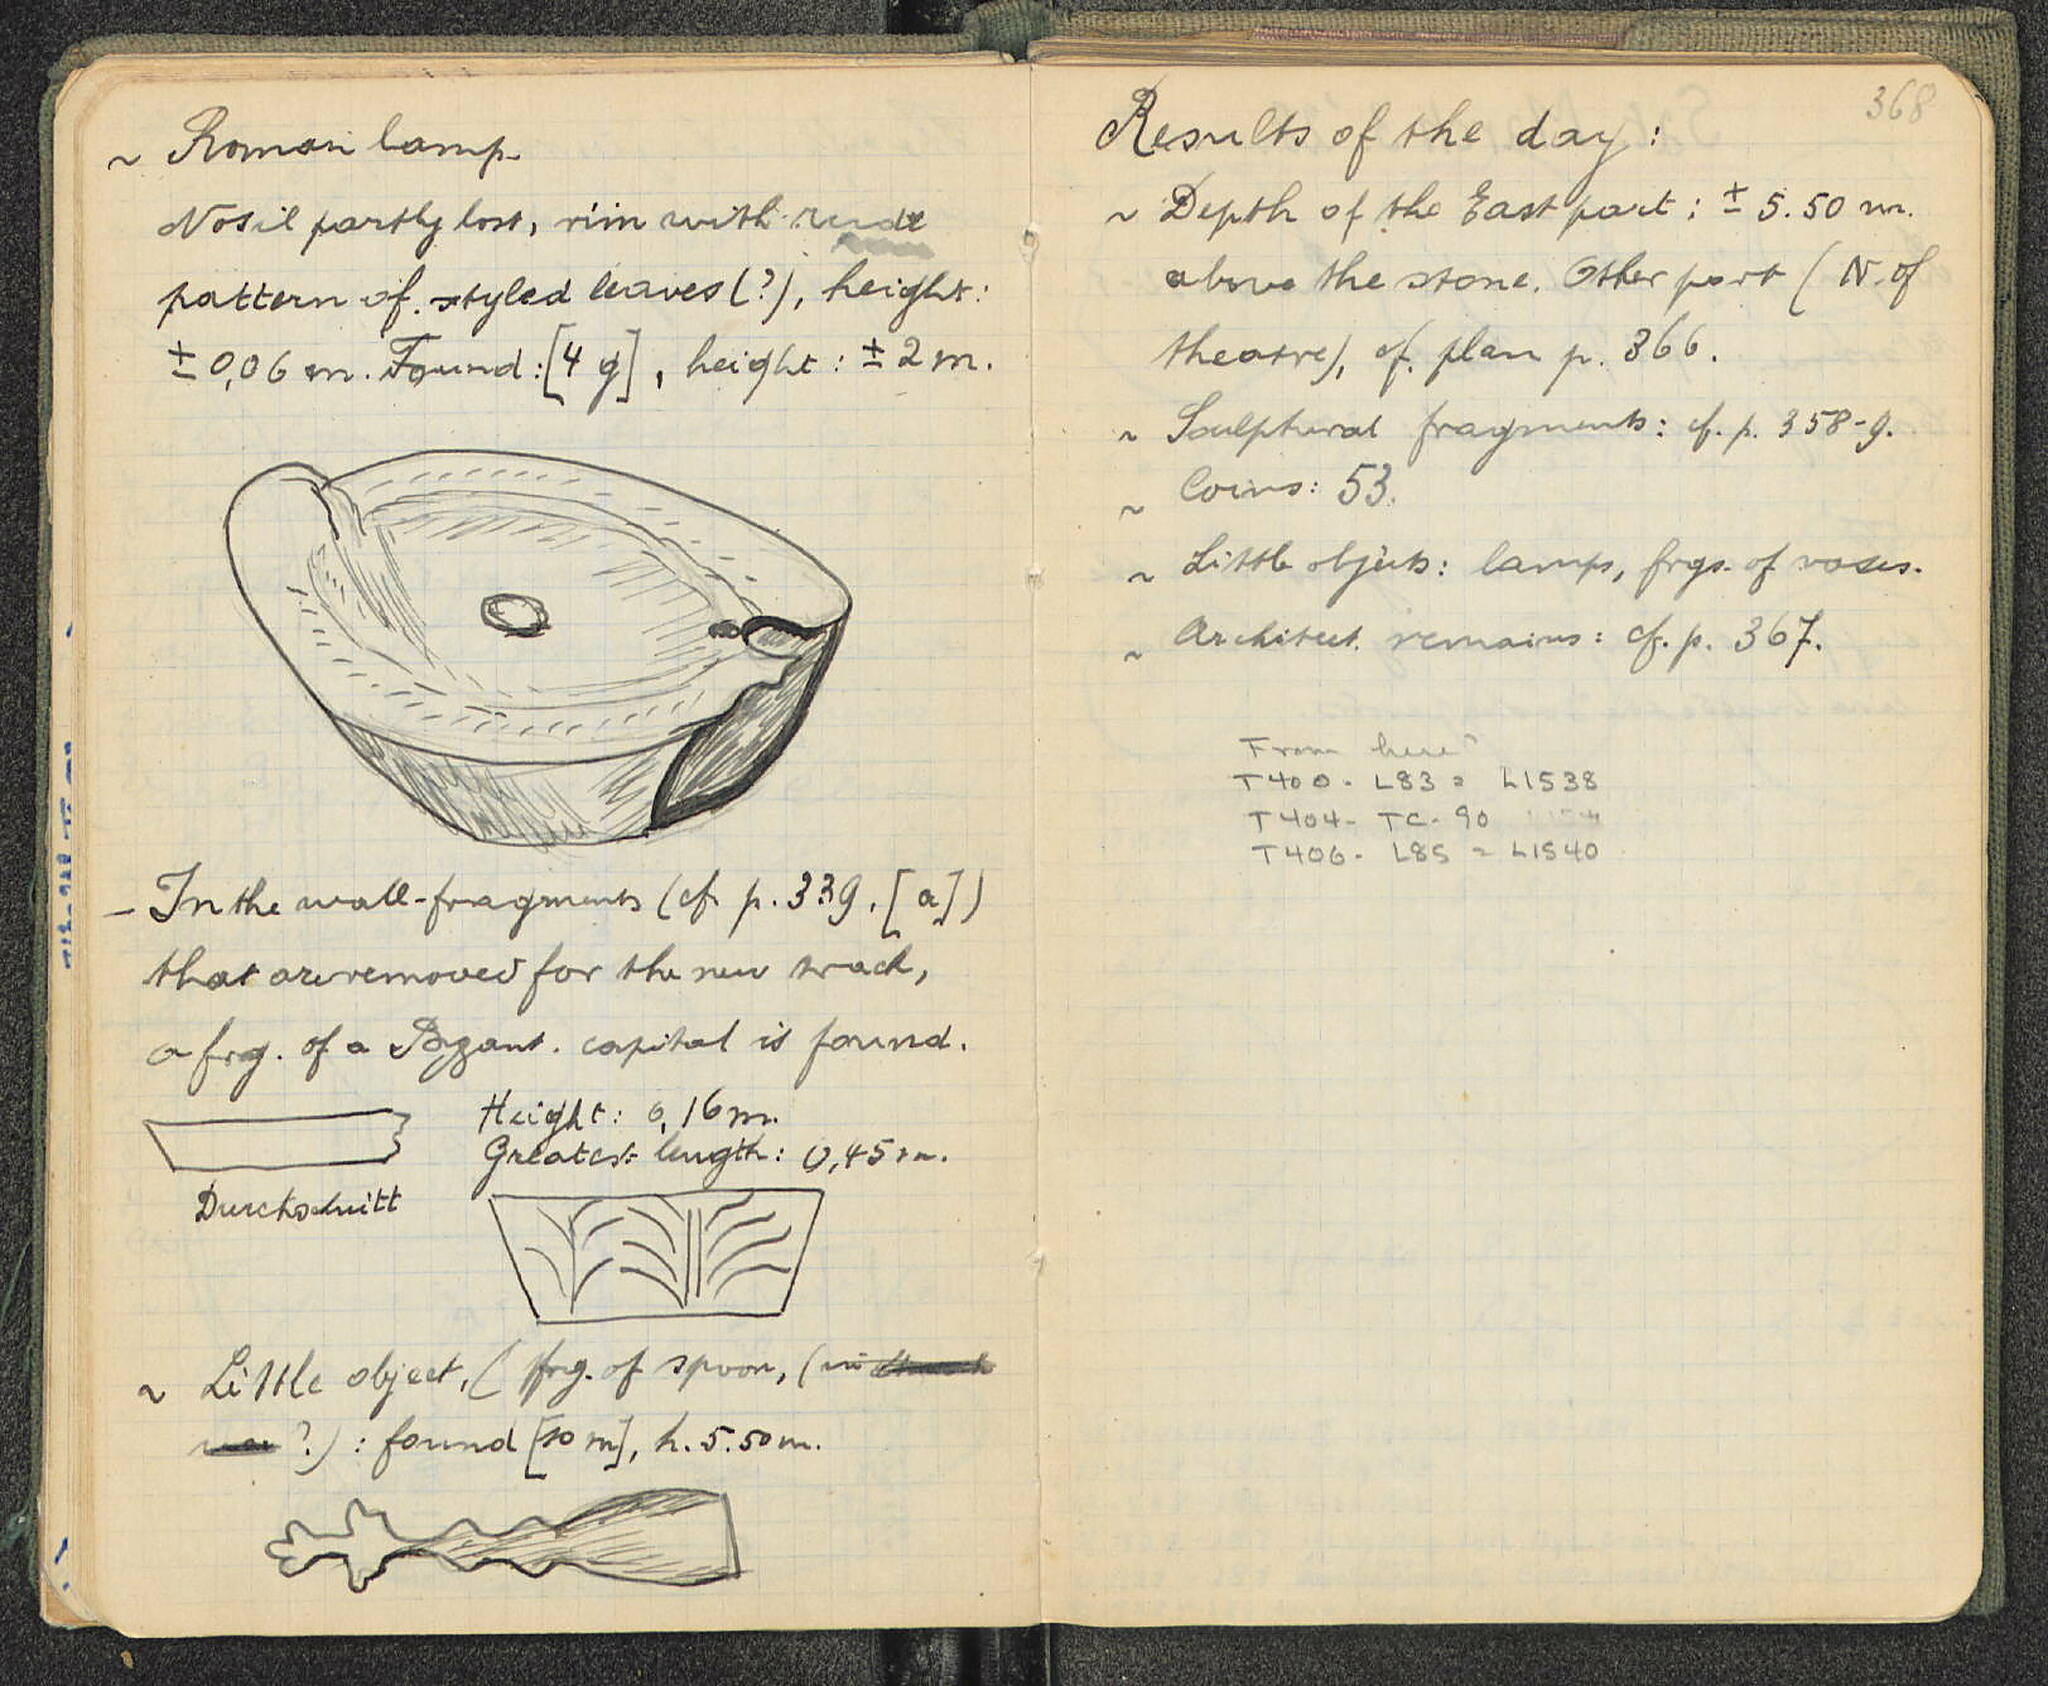 ~ Roman lamp.
Nosil partly lost, rim with rude
pattern of styled leaves (?), height:
± 0,06 m. Found: [4 g], height: ± 2 m.
- In the wall-fragments (cf. p. 339, [a])
that are removed for the new track,
a frg. of a Byzant. capital is found.
Height: 0,16 m.
Greatest length: 0,45 m.
Durchschnitt
~ Little object, ( frg. of spoon, (
?) : found [10 m], h. 5.50 m.
368
Results of the day:
~ Depth of the East part: ± 5.50 m.
above the stone. Other part ( N. of
theatre), cf. plan p. 366.
~ Sculptural fragments: cf. p. 358-9.
~ Coins: 53.
~ Little objects: lamps, frgs. of vases.
~ Architect. remains: cf. p. 367.
From here?
T400 - L83 = L1538
T404 - TC - 90
T406 - L85 = L1540